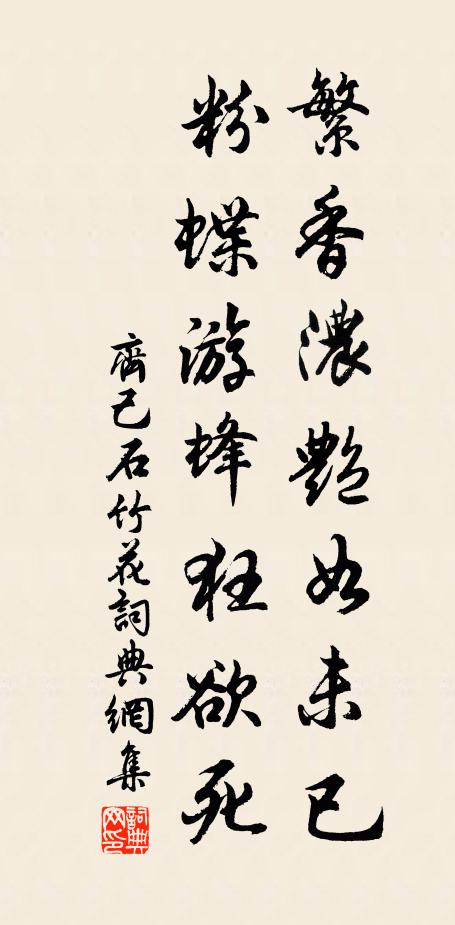 繁香濃艷如未已
粉蝶游蜂狂欲死
齊己石竹花詞典網集
詞典网印